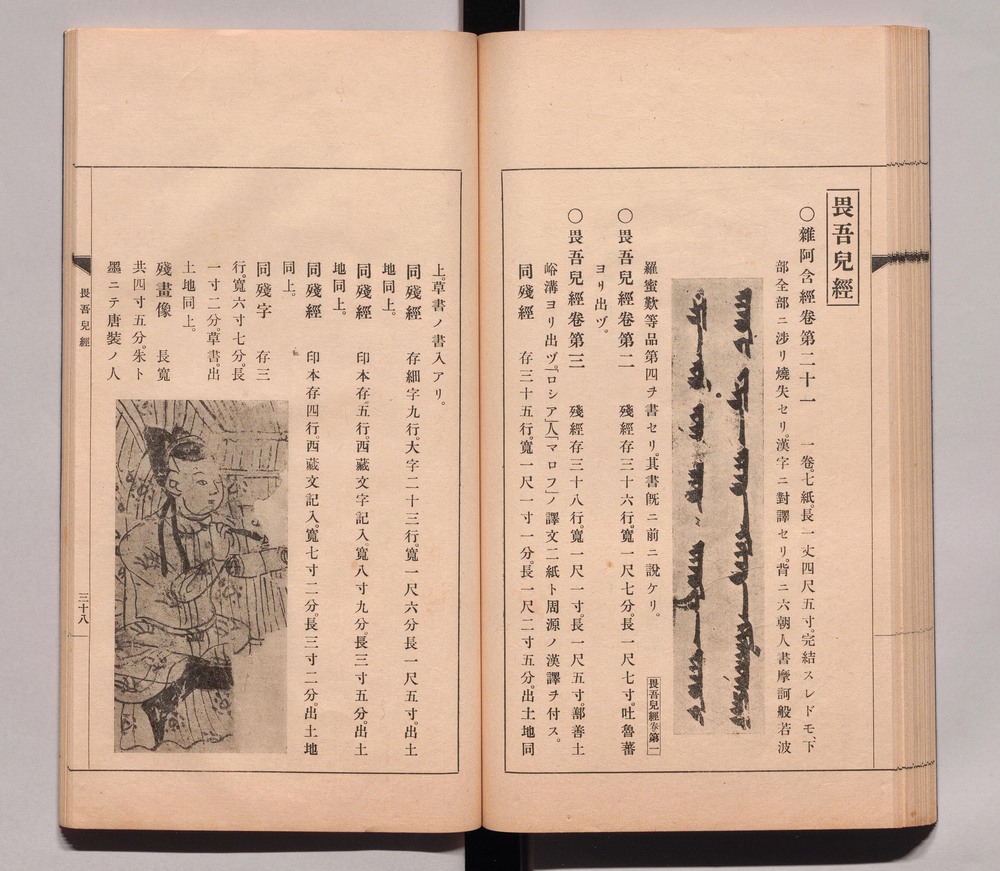 畏吾兒經
〇雜阿含經卷第二十一　一卷。七紙。長一丈四尺五寸。完結スレドモ、下
部全部ニ渉リ燒失セリ。漢字ニ對譯セリ。背ニ六朝人書摩訶般若波
羅蜜歎等品第四ヲ書セリ。其書既ニ前ニ說ケリ。
畏吾兒經卷第一
〇畏吾兒經卷第二　殘經存三十六行。寬一尺七分。長一尺七寸。吐魯蕃
ヨリ出ヅ。
〇畏吾兒經卷第三　殘經存三十八行。寬一尺一寸。長一尺五寸。鄯善土
峪溝ヨリ出ヅ。「ロシア」人「マロフ」ノ譯文二紙ト周源ノ漢譯ヲ付ス。
同殘經　存三十五行。寬一尺一寸一分。長一尺二寸五分。出土地同
上。草書ノ書入アリ。
同殘經　存細字九行。大字二十三行。寬一尺六分長一尺五寸。出土
地同上。
同殘經　印本存五行。西藏文字記入。寬八寸九分。長三寸五分。出土
地同上。
同殘經　印本存四行。西藏文記入。寬七寸二分。長三寸二分。出土地
同上。
同殘字　存三
行。寬六寸七分。長
一寸二分。草書。出
土地同上。
殘畫像　長寬
共四寸五分。朱ト
墨ニテ唐裝ノ人
畏吾兒經
三十八